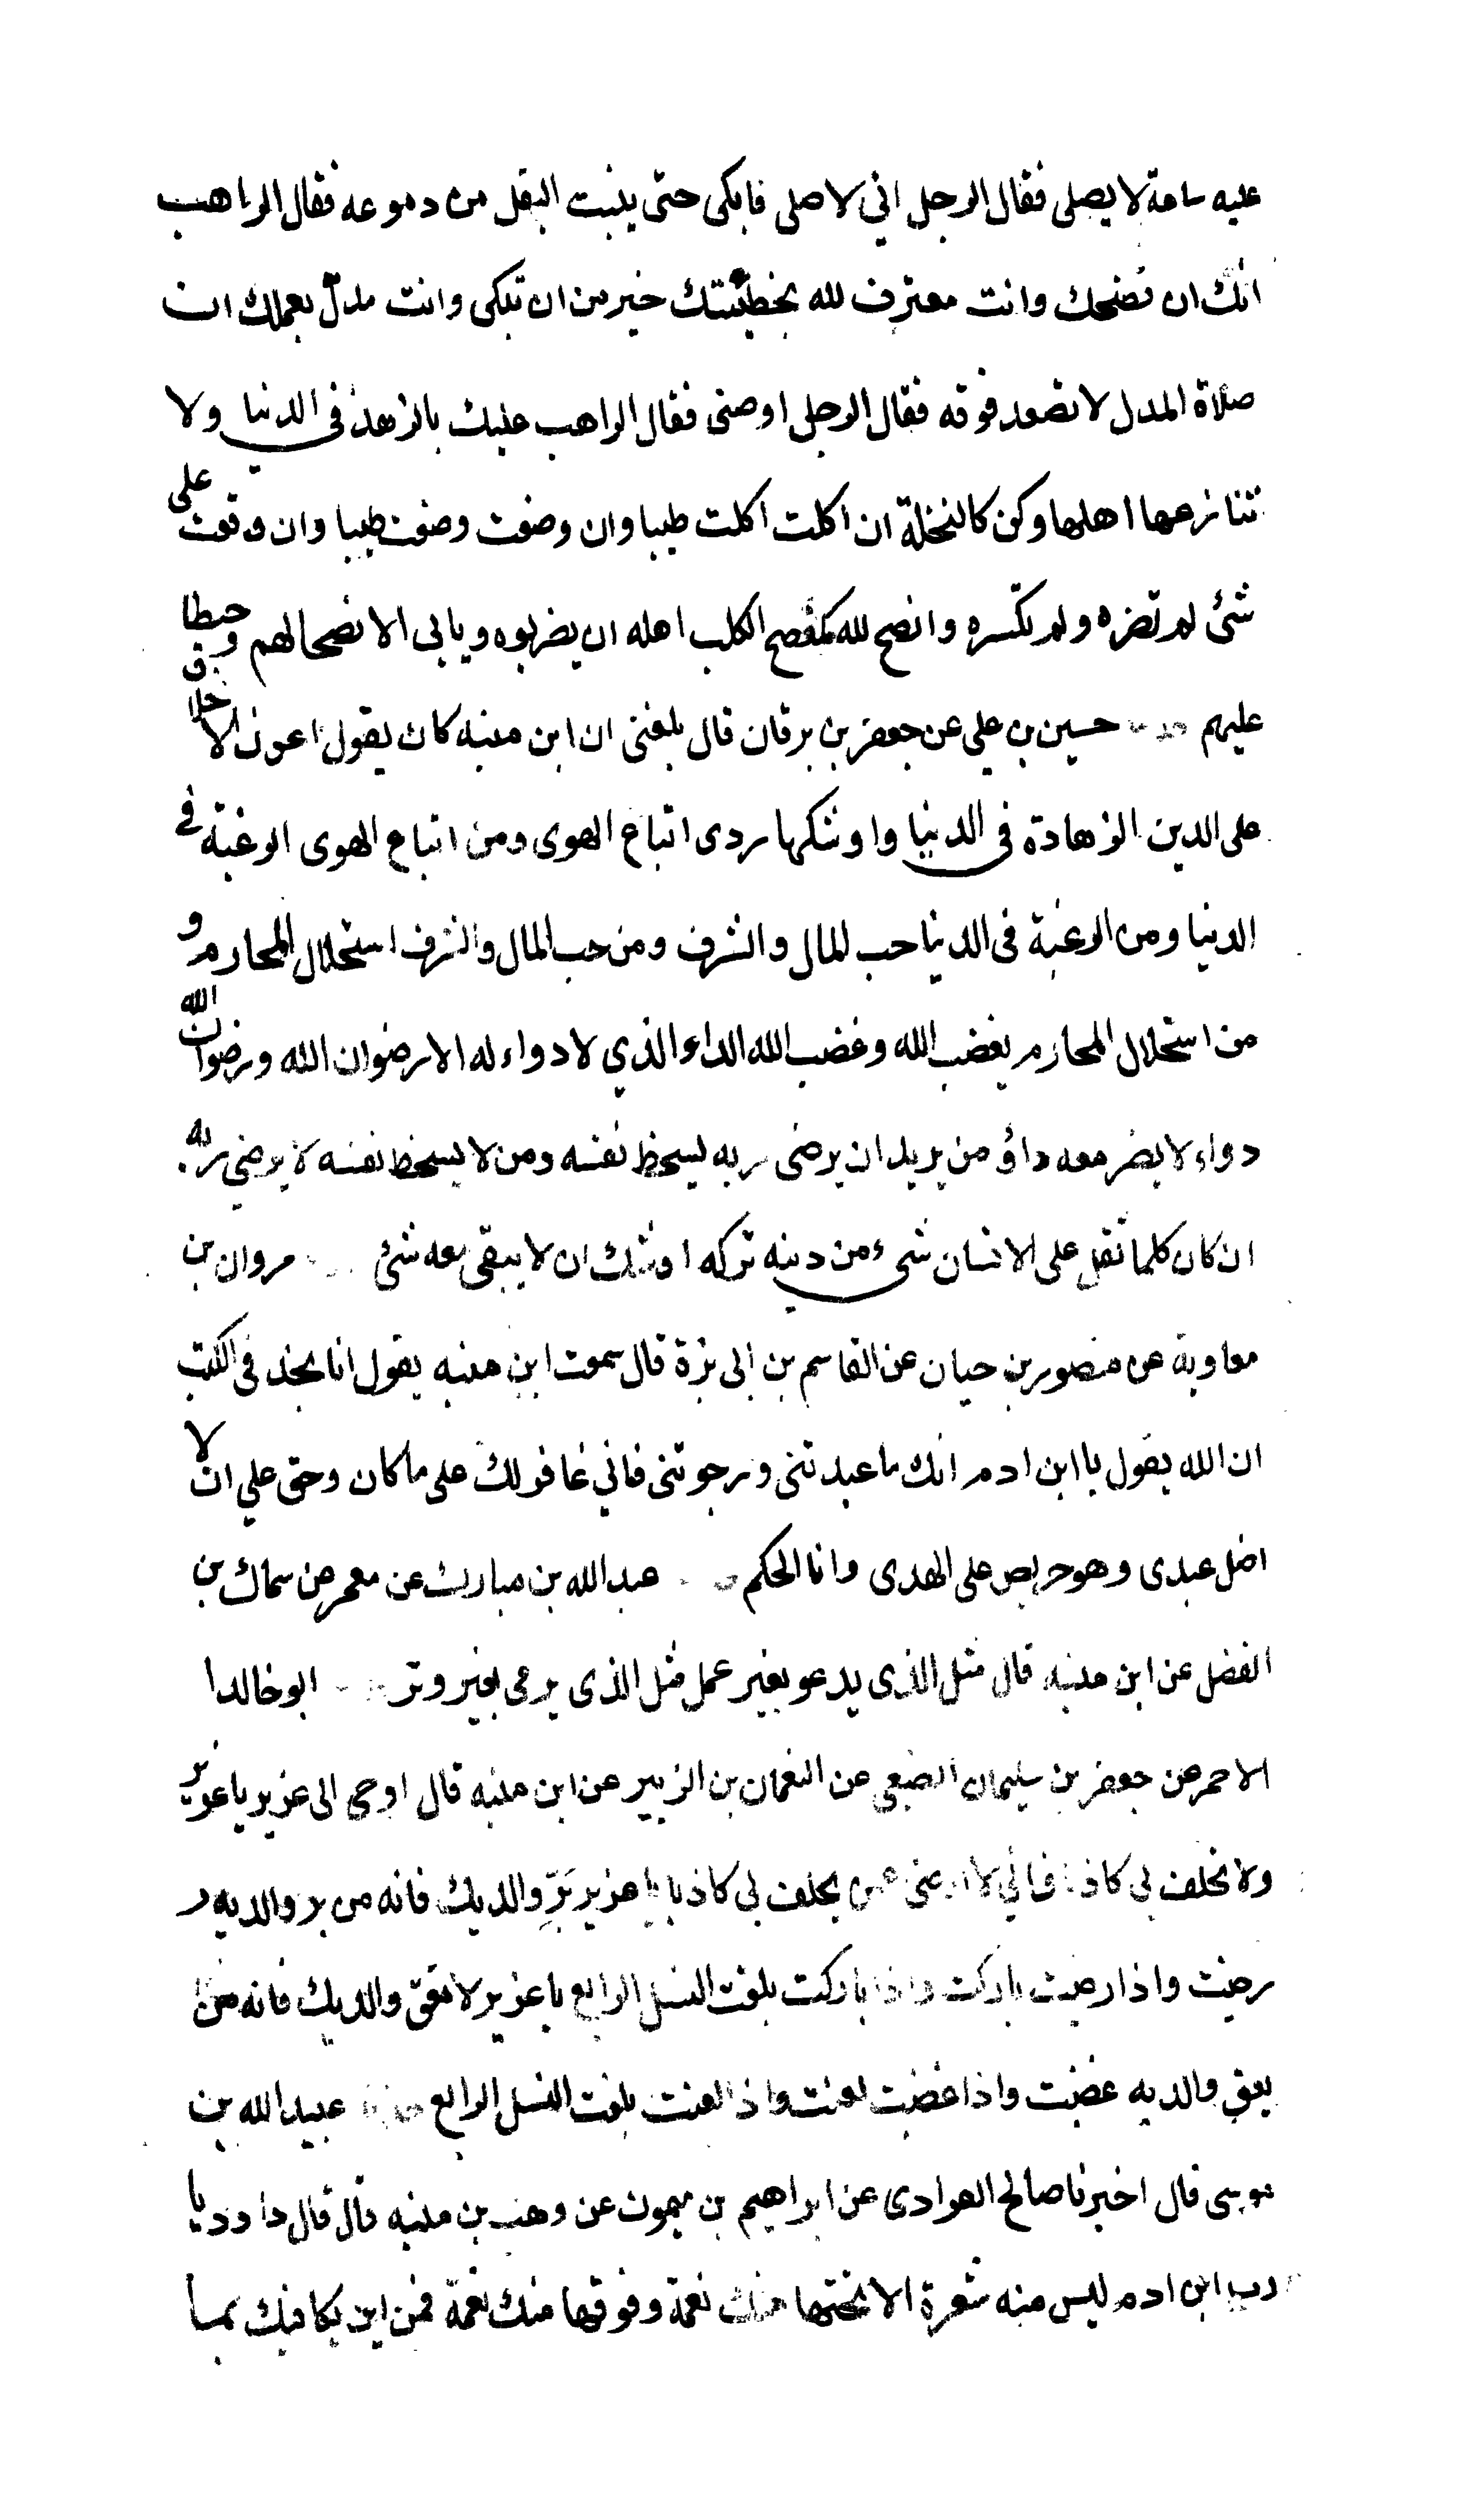 عليه ساعة لا يصلى فقال الرجل اني لاصلى فابكى حتى ينبت البقل من دموعه فقال الراهب
انك ان تضحك وانت معترف لله بخطيئتك خير من ان تبكى وانت مدل بعملك ان
صلاة المدل لا تصعد فوقه فقال الرجل اوصنى فقال الراهب عليك بالزهد في الدنيا ولا
تنازعها اهلها وكن كالنخلة ان اكلت اكلت طيبا وان وضعت وضعت طيبا وان وقعت على
شئ لم تضره ولم تكسره وانصح لله كنصح الكلب اهله ان يضربوه ويابى الا نصحا لهم وحيطا
عليهم حسين بن علي عن جعفر بن برقان قال بلغنى ان ابن منبه كان يقول اعون الاخلاق
على الدين الزهادة في الدنيا واوشكها ردى اتباع الهوى ومن اتباع الهوى الرغبة في
الدنيا ومن الرغبة في الدنيا حب المال والشرف ومن حب المال والشرف استحلال المحارم و
من استحلال المحارم يغضب الله وغضب الله الداء الذي لا دواء له الا رضوان الله ورضوان الله
دواء لا يضر معه داؤ من يريد ان يرضى ربه يسخط نفسه ومن لا يسخط نفسه لا يرضي ربه
ان كان كلما ثقل على الانسان شىء من دينه تركه اوشك ان لا يبقى معه شئ مروان بن
معاوية عن منصور بن حيان عن القاسم بن ابى بزة قال سمعت ابن منبه يقول انا نجد في الكتب
ان الله يقول يا ابن ادم انك ما عبدتنى ورجوتنى فاني غافر لك على ما كان وحق علي ان لا
اضل عبدى وهو حريص على الهدى وانا الحكم عبد الله بن مبارك عن معمر عن سماك بن
الفضل عن ابن منبه قال مثل الذى يدعو بغير عمل مثل الذى يرمى بغير وتر ابو خالد ا
الاحمر عن جعفر بن سليمان الضبعى عن النعمان بن الزبير عن ابن منبه قال اوحى الى عزير يا عزير
ولا تحلف بي كاذبا فاني لا ارضى عمن يحلف بي كاذبا يا عزير بَرِّ والديك فانه من بر والديه ر
رضيت واذا رضيت باركت واذا باركت بلغت النسل الرابع يا عزير لا تعق والديك فانه من
يعق والديه غضبت واذا غضبت لعنت واذا لعنت بلغت النسل الرابع عبيد الله بن
موسى قال اخبرنا صالح العوادى عن ابراهيم بن ميمون عن وهب بن منبه قال قال داود يا
رب ابن ادم ليس منه شعرة الا تحتها منك نعمة وفوقها منك نعمة فمن اين يكافيك بما